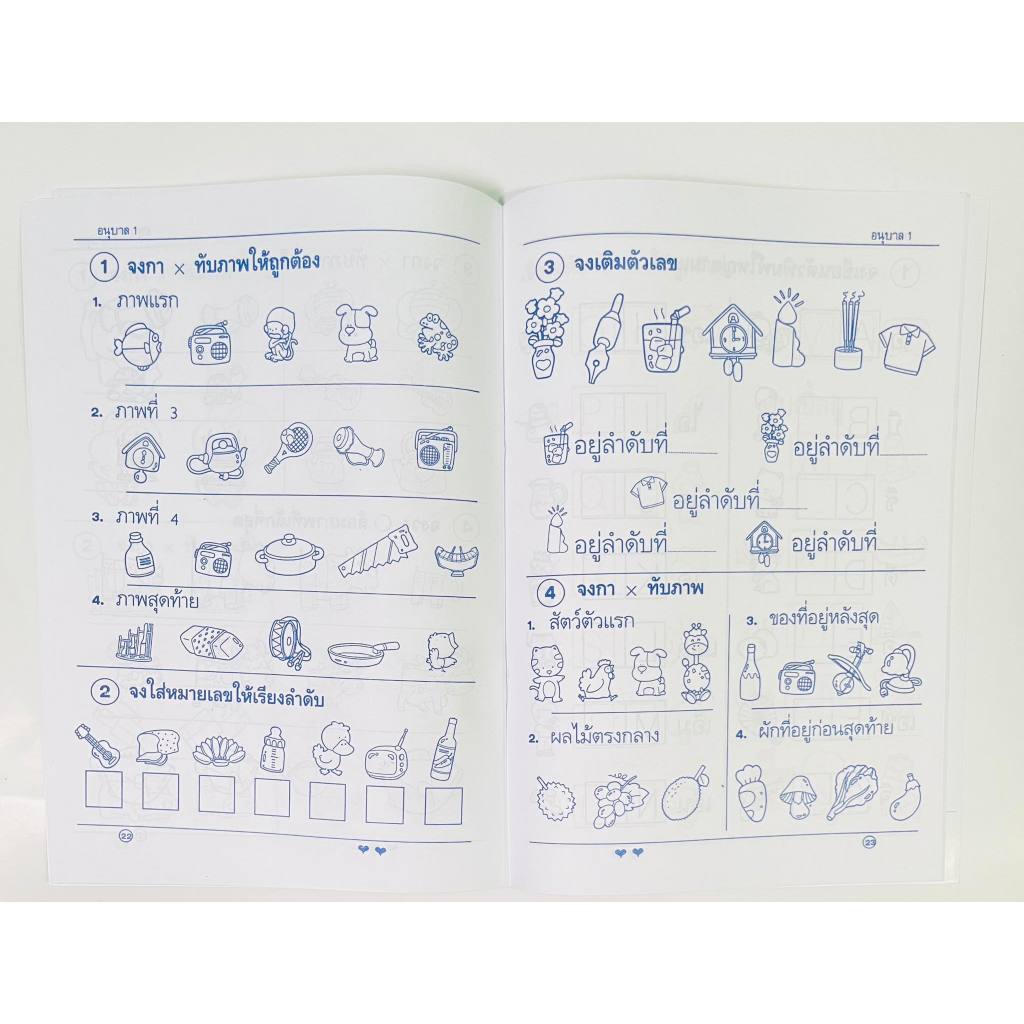 อนุบาล 1
1 จงกา × ทับภาพให้ถูกต้อง
1. ภาพแรก
2. ภาพที่ 3
3. ภาพที่ 4
4. ภาพสุดท้าย
2 จงใส่หมายเลขให้เรียงลำดับ
22
อนุบาล 1
3 จงเติมตัวเลข
อยู่ลำดับที่
อยู่ลำดับที่
อยู่ลำดับที่
อยู่ลำดับที่
อยู่ลำดับที่
4 จงกา × ทับภาพ
1. สัตว์ตัวแรก
2. ผลไม้ตรงกลาง
3. ของที่อยู่หลังสุด
4. ผักที่อยู่ก่อนสุดท้าย
23